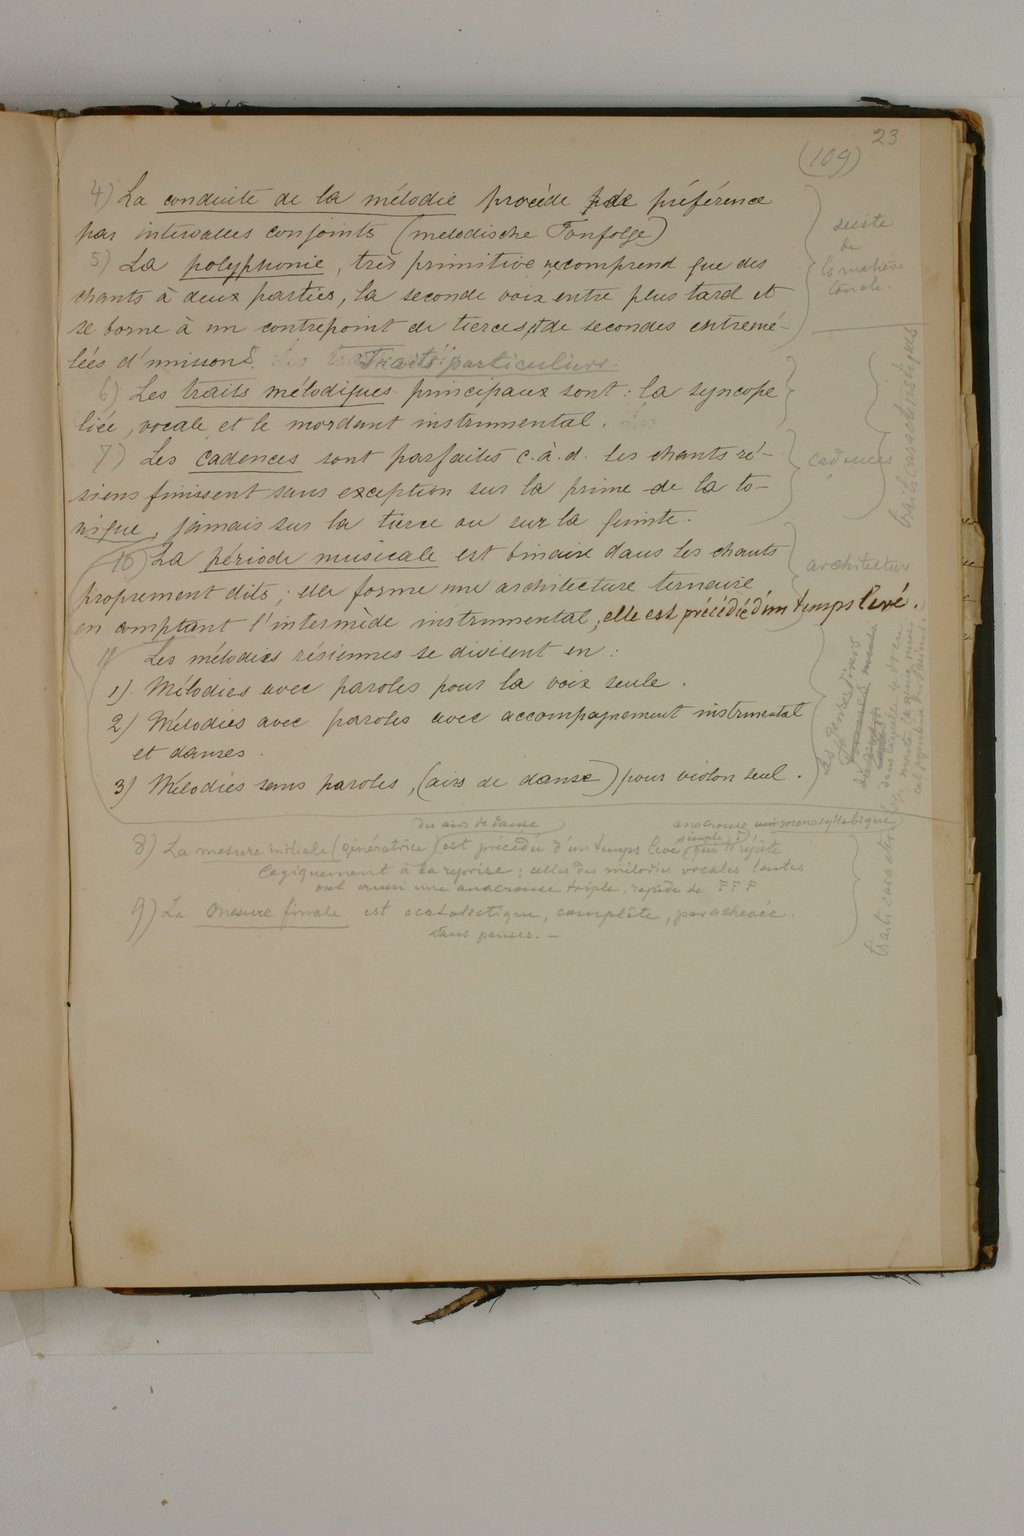 23
(109)
4) La conduite de la mélodie procède de préférence
par intervalles conjoints (melodische Tonfolge)
5) La polyphonie, très primitive ne comprend que des
chants à deux parties, la seconde voix entre plus tard et
se borne à un contrepoint de tierces, et de secondes entremê-
lées d'unissons.
Traits particuliers.
6) Les traits mélodiques principaux sont : la syncope
liée, vocale, et le mordant instrumental.
7) Les cadences sont parfaites c.à.d. les chants ré-
siens finissent sans exception sur la prime de la to-
nique, jamais sur la tierce ou sur la quinte.
10) La période musicale est binaire dans les chants
proprement dits; elle forme une architecture ternaire
en comptant l'intermède instrumental, elle est précédée d'un temps levé.
11 Les mélodies résiennes se divisent en :
1) Mélodies avec paroles pour la voix seule.
2) Mélodies avec paroles avec accompagnement instrumental
et danses.
3) Mélodies sans paroles, (airs de danse) pour violon seul.
des airs de danse
anacrouse monosyllabique
simple
8) La mesure initiale (génératrice) est précédée d'un temps levé, qui se répète
logiquement à la reprise; celles des mélodies vocales lentes
ont aussi une anacrouse triple, rapide de
9) La mesure finale est acatalectique, complète, parachevée.
sans pauses. —
suite
de
la matière
tonale.
traits caractéristiques
cadences
architecture
traits